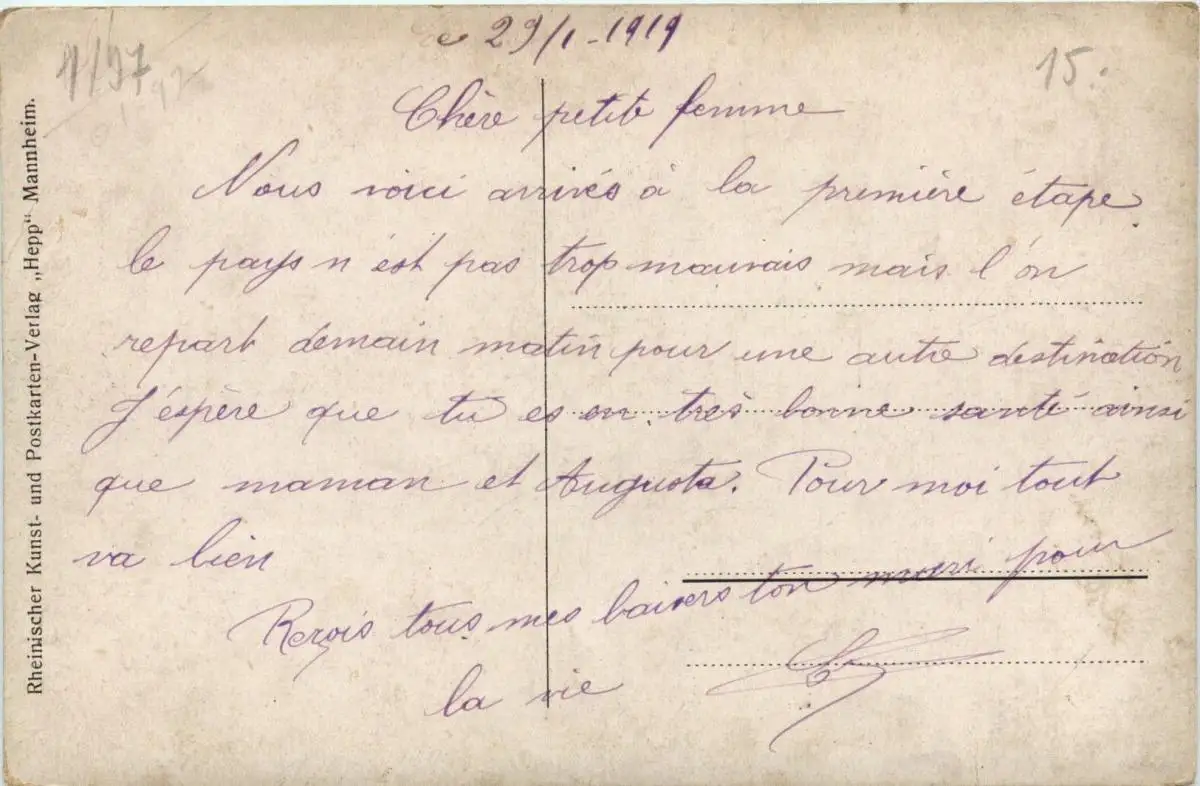 le 29/1-1919
1/97
15.
Chère petite femme
Nous voici arrivés à la première étape
le pays n'est pas trop mauvais mais l'on
repart demain matin pour une autre destination
J'espère que tu es en très bonne santé ainsi
que maman et Augusta. Pour moi tout
va bien
Reçois tous mes baisers ton mari pour
la vie
Rheinischer Kunst- und Postkarten-Verlag „Hepp“ Mannheim.